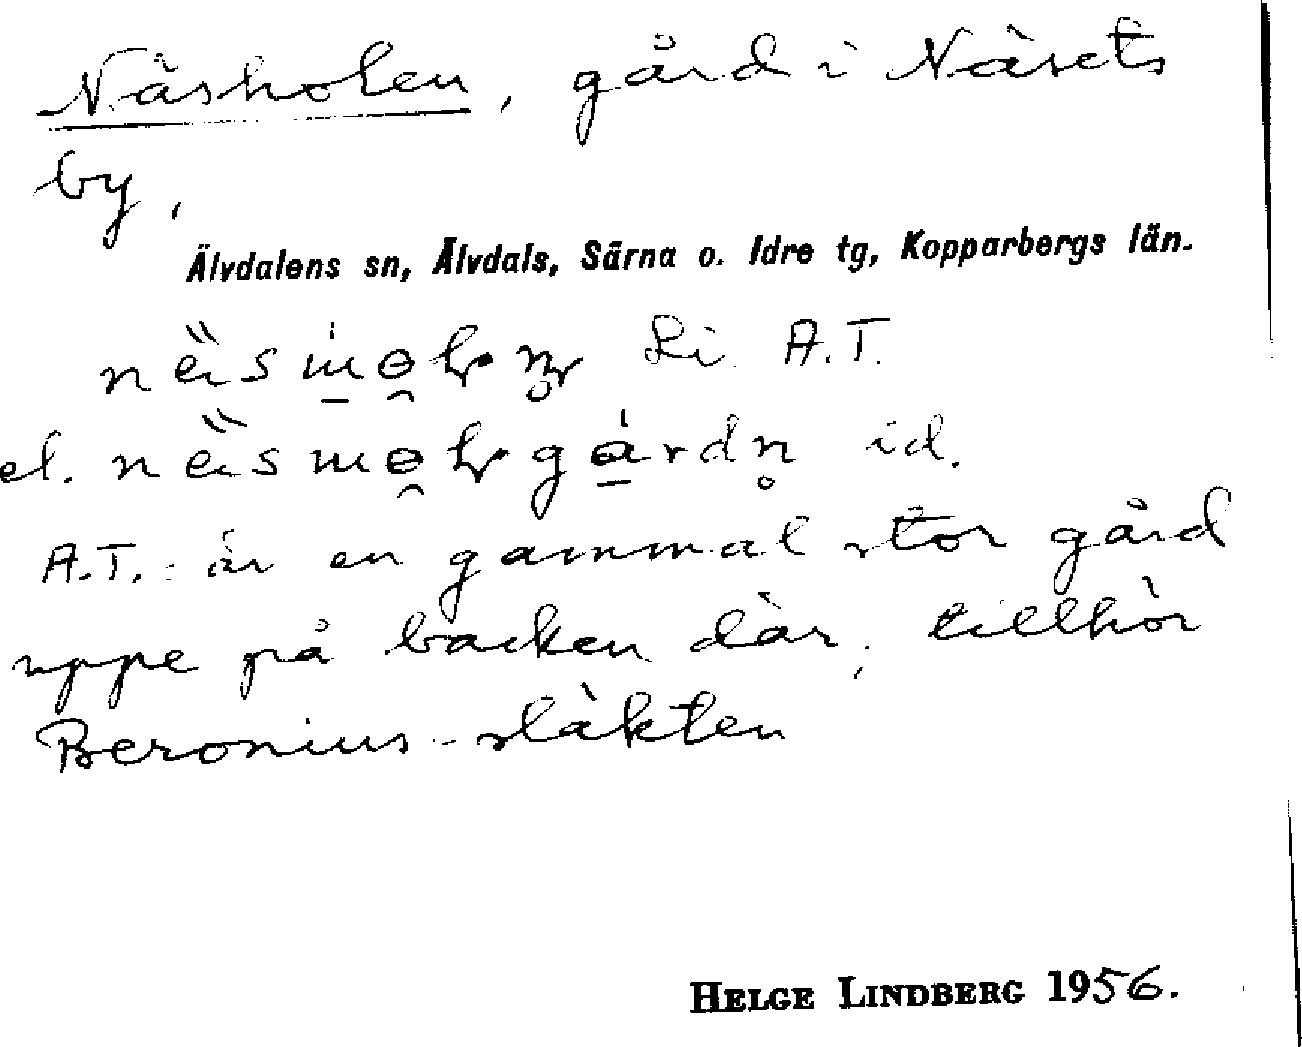 Näsholen, gård i Näsets
by,
Älvdalens sn, Älvdals, Särna o. Idre tg, Kopparbergs län.
Li A.T.
el. id.
A.T.: är en gammal stor gård
uppe på backen där, tillhör
Beronius-släkten
HELGE LINDBERG 1956.